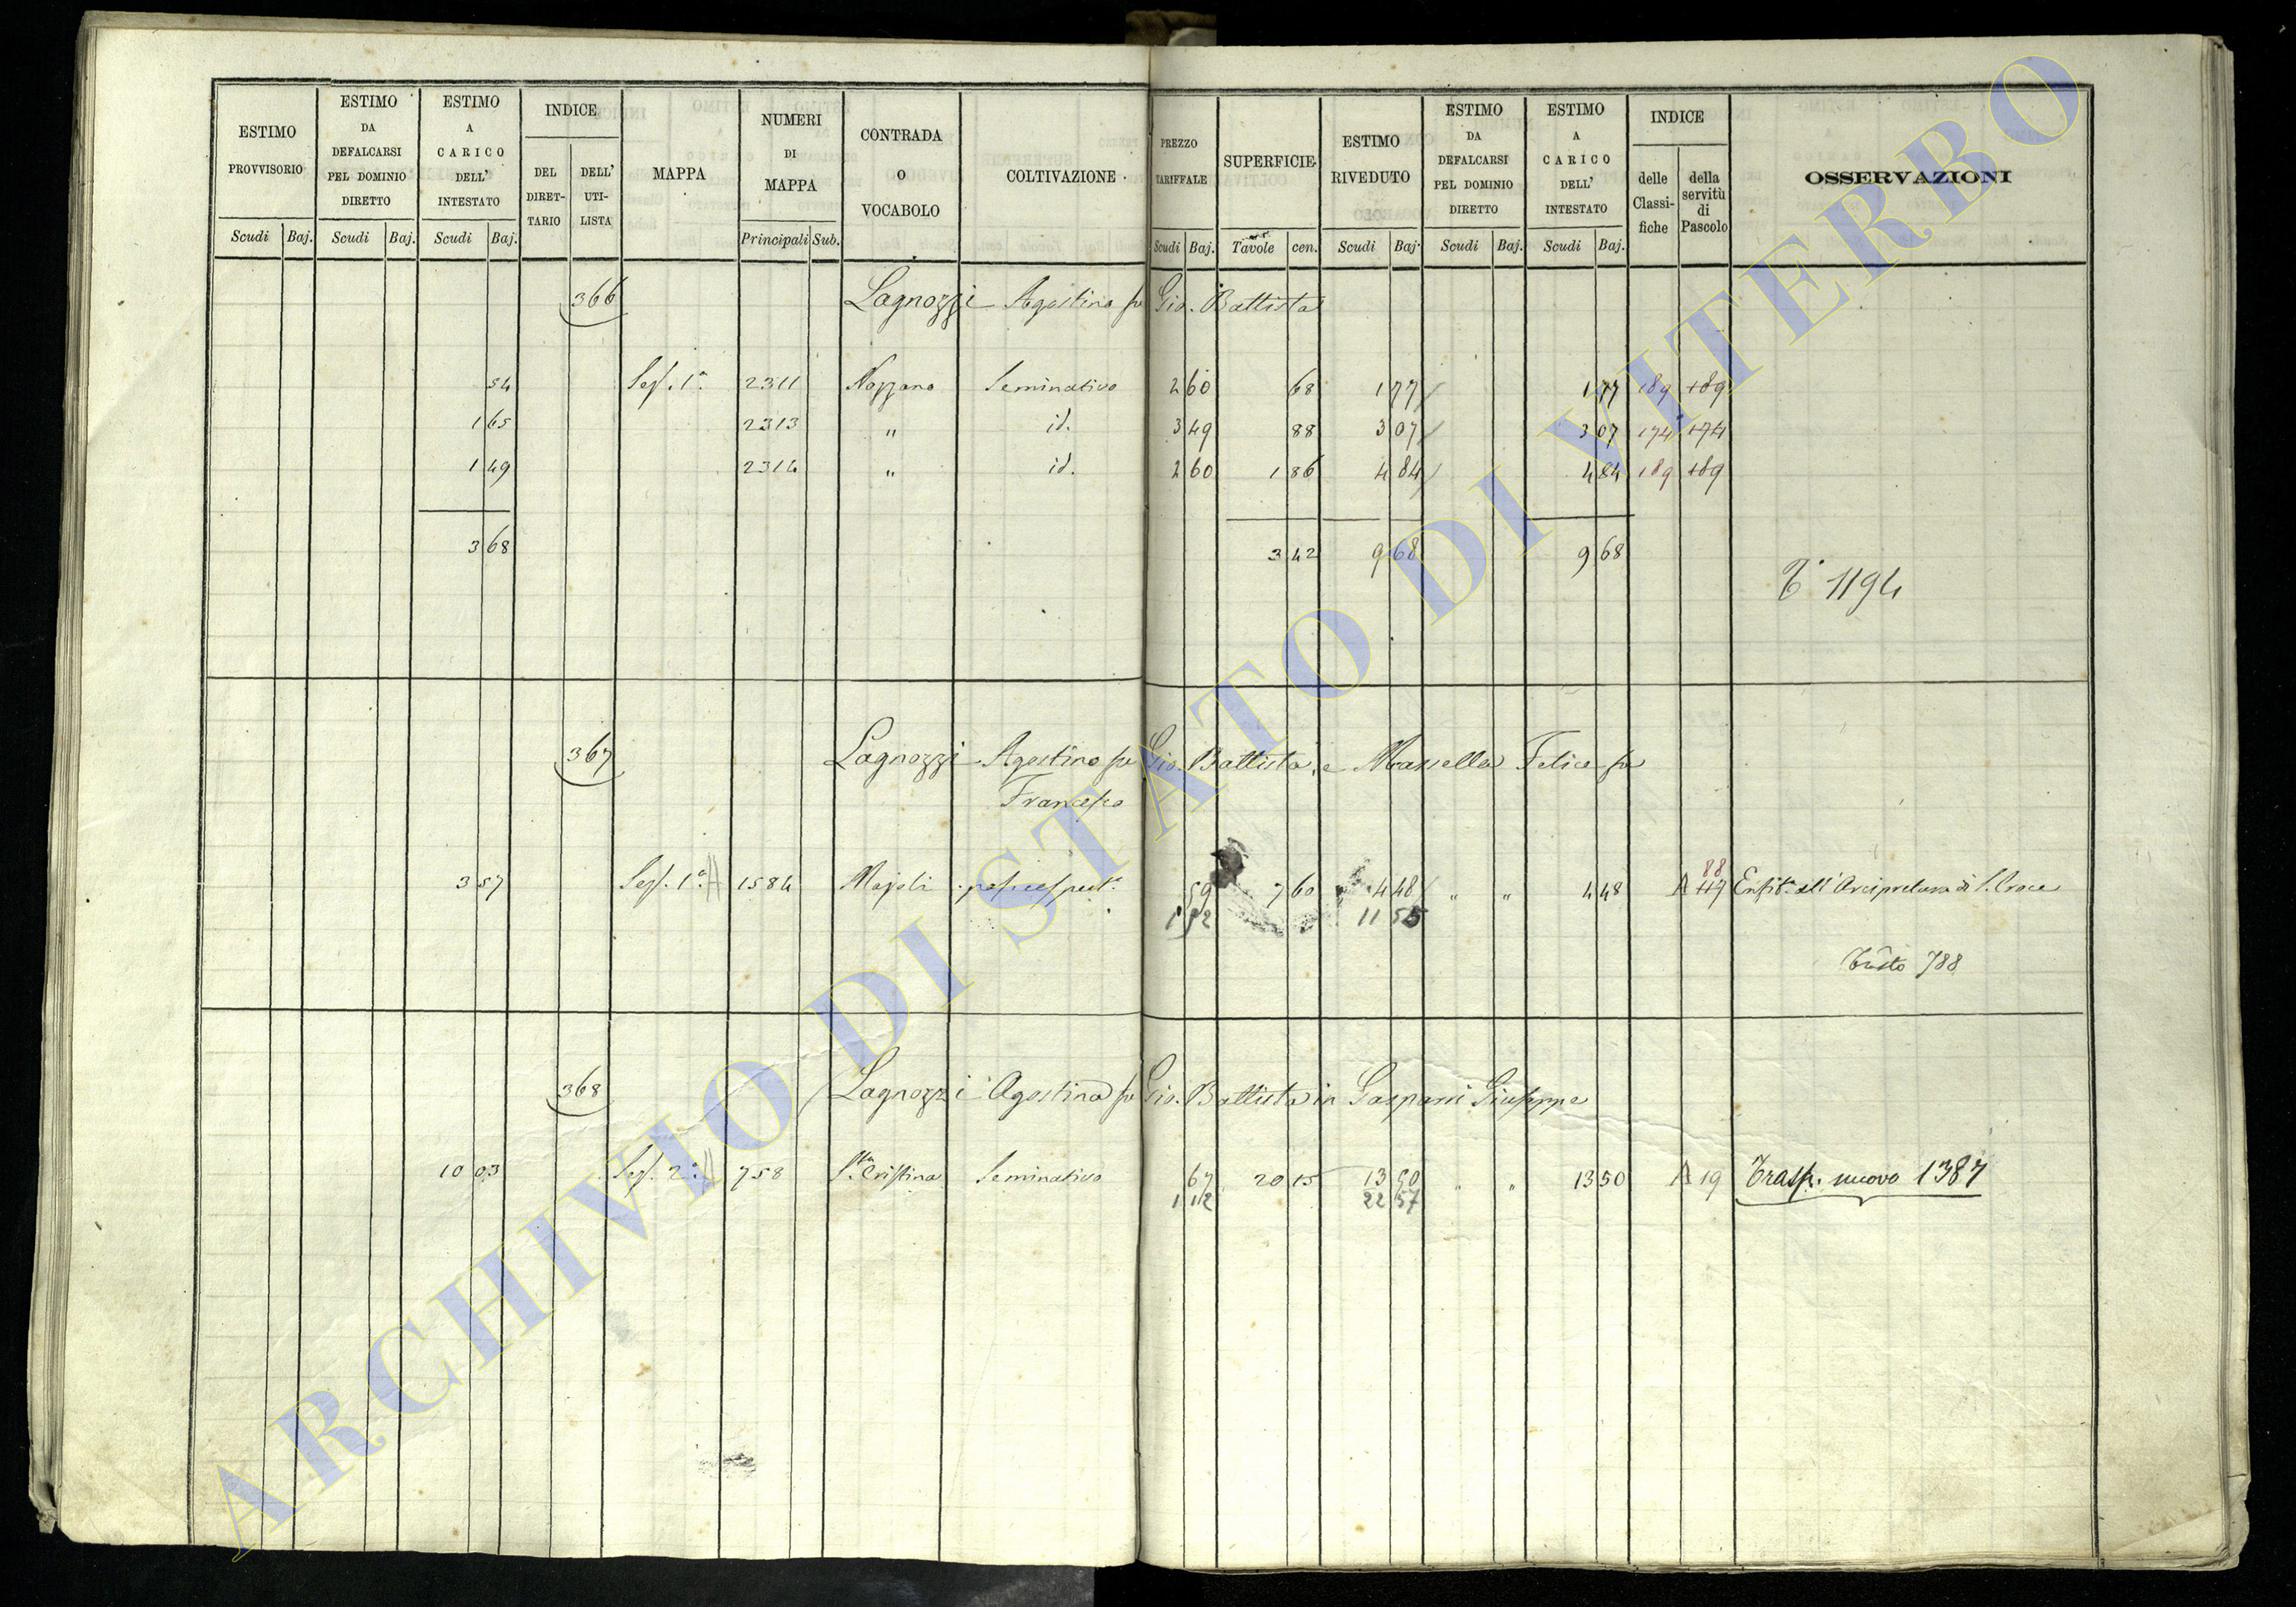 ESTIMO PROVVISORIO Scudi Baj.
ESTIMO DA DEFALCARSI PEL DOMINIO DIRETTO Scudi Baj.
ESTIMO A CARICO DELL' INTESTATO Scudi Baj.
INDICE DEL DIRET-TARIO DELL' UTI-LISTA
MAPPA
NUMERI DI MAPPA Principali Sub.
CONTRADA O VOCABOLO
COLTIVAZIONE
PREZZO TARIFFALE Scudi Baj.
SUPERFICIE Tavole cen.
ESTIMO RIVEDUTO Scudi Baj.
ESTIMO DA DEFALCARSI PEL DOMINIO DIRETTO Scudi Baj.
ESTIMO A CARICO DELL' INTESTATO Scudi Baj.
INDICE delle Classi-fiche della servitù di Pascolo
OSSERVAZIONI
366 Lagnozzi Agostino fu Gio. Battista
54 Sez. 1a 2311 Nozzano Seminativo 2 60 68 1 77 1 77 189 189
1 65 2313 " id. 3 49 88 3 07 3 07 174 174
1 49 2314 " id. 2 60 1 86 4 84 4 84 189 189
3 68 3 42 9 68 9 68
T. 1194
367 Lagnozzi Agostino fu Gio. Battista, e Massella Felice fu
Francesco
88
3 57 Sez. 1a 1584 Majoli 59 7 60 4 48 " " 4 48 A Enfit. all' Arcipretura di S. Croce
1 52 11 55
788
368 Lagnozzi Agostina fu Gio. Battista in Gasparri Giuseppe
10 03 Sez. 2a 758 Sta Cristina Seminativo 67 20 15 13 50 " " 13 50 A 19 Trasp. nuovo 1387
1 12 22 57
ARCHIVIO DI STATO DI VITERBO